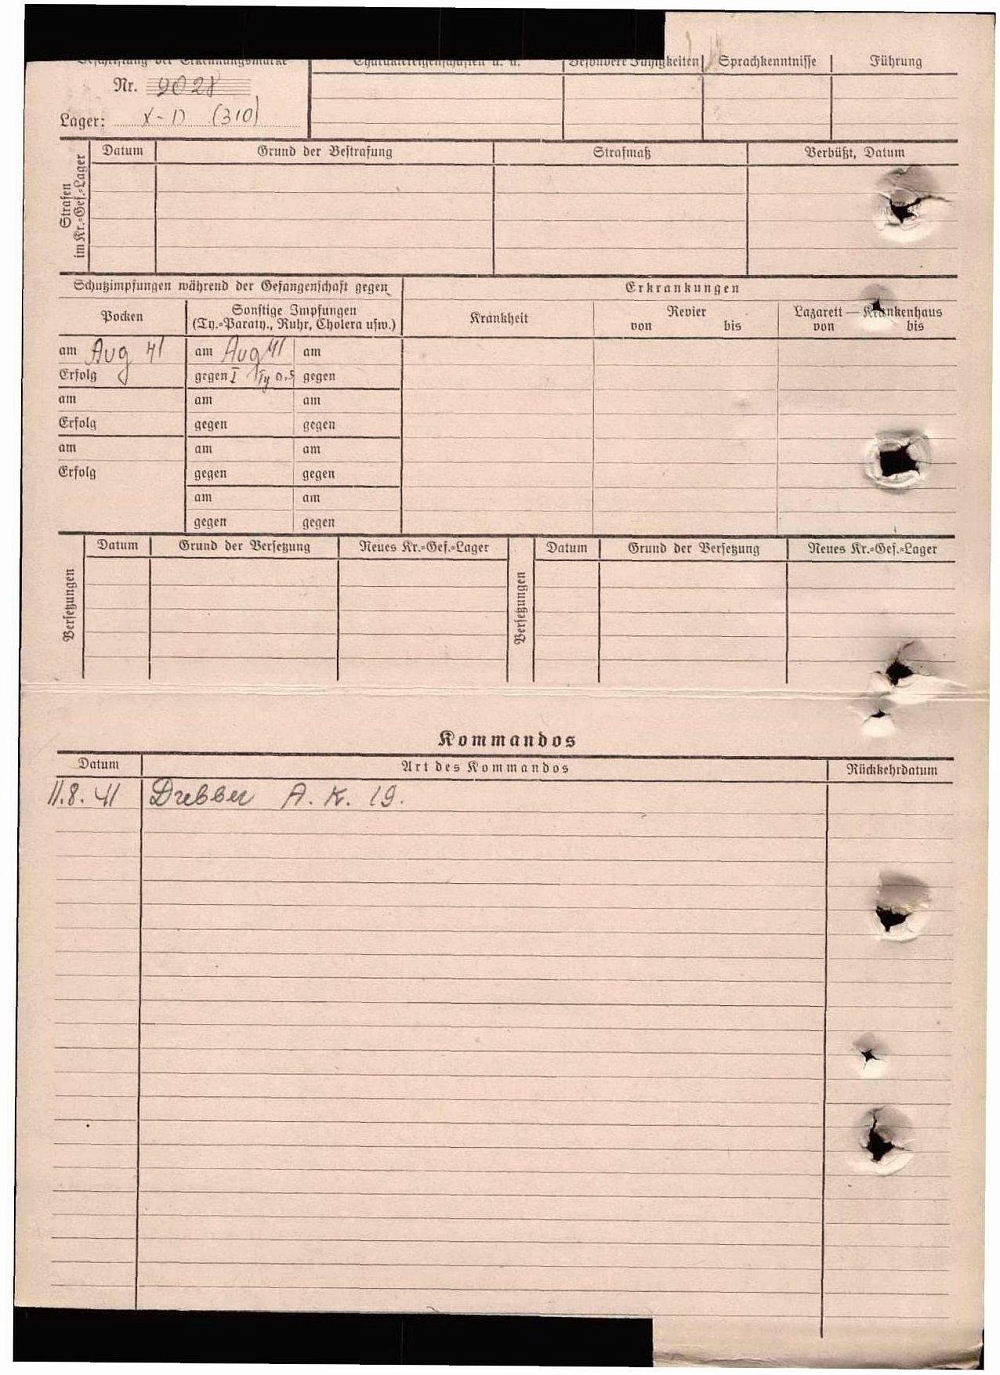 Beschriftung der Erkennungsmarke
Nr. 9028
Lager: X-D (310)
Charaktereigenschaften u. ä.
Besondere Fähigkeiten
Sprachkenntnisse
Führung
Strafen
im Kr.=Gef.=Lager
Datum
Grund der Bestrafung
Strafmaß
Verbüßt, Datum
Schutzimpfungen während der Gefangenschaft gegen
Erkrankungen
Pocken
Sonstige Impfungen
(Ty.=Paraty., Ruhr, Cholera usw.)
Krankheit
Revier
von bis
Lazarett — Krankenhaus
von bis
am Aug 41 am Aug 41 am
Erfolg gegen I Ty 0.5 gegen
am am am
Erfolg gegen gegen
am am am
Erfolg gegen gegen
am am
gegen gegen
Versetzungen
Datum
Grund der Versetzung
Neues Kr.=Gef.=Lager
Versetzungen
Datum
Grund der Versetzung
Neues Kr.=Gef.=Lager
Kommandos
Datum
Art des Kommandos
Rückkehrdatum
11.8.41 Drebber A. K. 19.